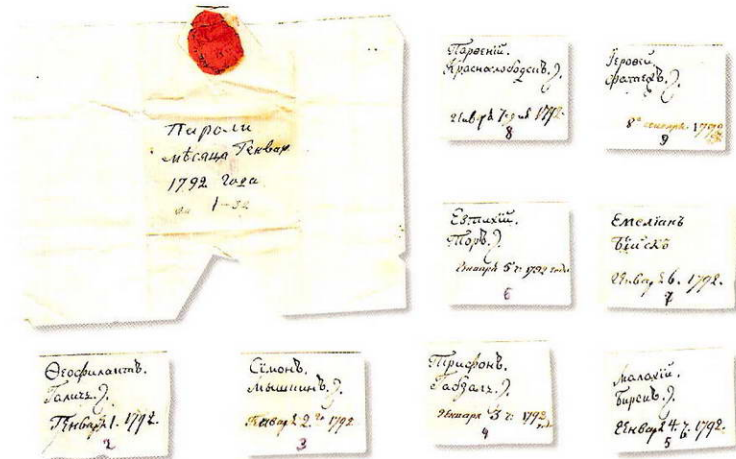 Пароли
мѣсяца Генвар
1792 года
1
Парѳеній.
Краснослободскъ.
1792.
8
Іероѳей
Фатежъ.
8 1792
9
Евтихій.
Торъ.
Января 5 1792 года
6
Емеліанъ
Бійскъ
Январ 6. 1792.
7
Ѳеофилактъ.
Галичь.
Генваря 1. 1792.
2
Сімонъ.
Мышкинъ.
Января 2 1792
3
Трифонъ.
Января 3 1792
4
Малахій.
Бирскъ.
Январ 4. 1792.
5